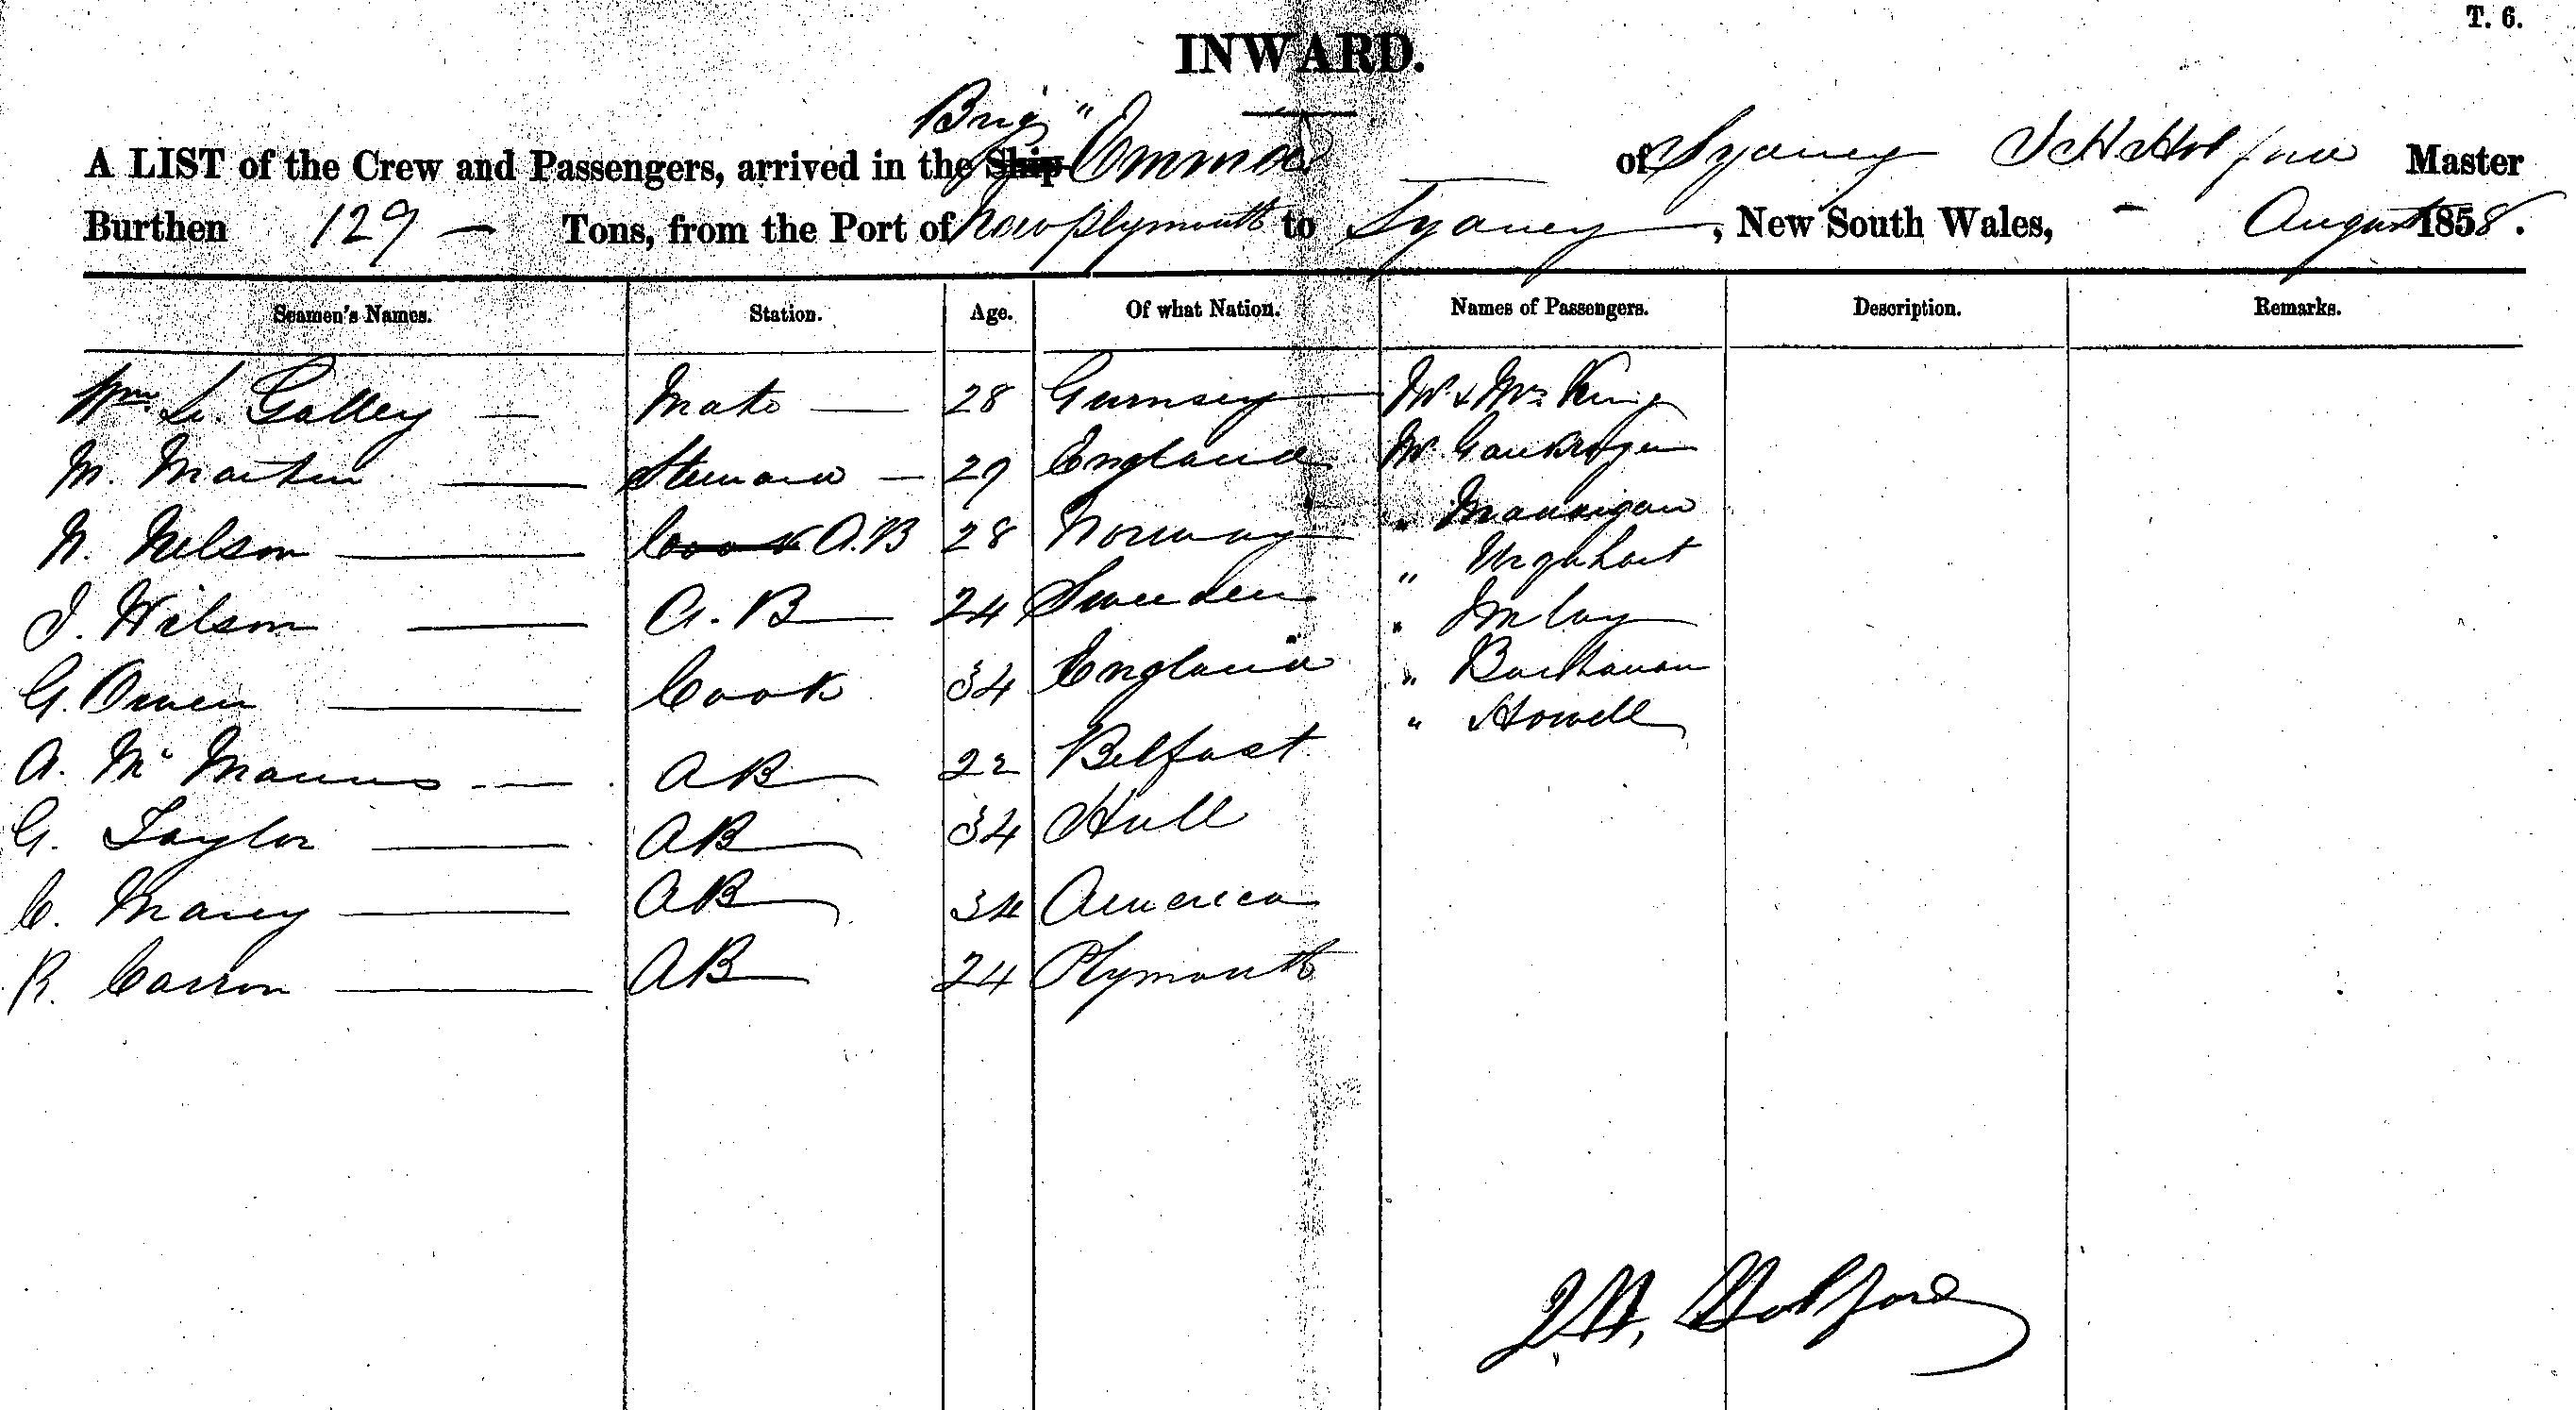 T. 6.
INWARD.
Brig "
A LIST of the Crew and Passengers, arrived in the Ship Emma of Sydney J H Holford Master
Burthen 129 — Tons, from the Port of New Plymouth to Sydney, New South Wales, - August 1858.
Seamen's Names. Station. Age. Of what Nation. Names of Passengers. Description. Remarks.
Wm. Le Galley — Mate — 28 Gurnsey Mr. & Mrs. King
M. Martin — Steward — 29 England Mr.
N. Nelson — Cook A.B 28 Norway "
J. Wilson — A.B 24 Sweeden " Urquhart
G. Owen — Cook 34 England " Imlay
A. Mc Manus — AB 22 Belfast " Buchanan
G. Taylor — AB 34 Hull " Howell
C. — AB 34 America
R. Carron — AB 24 Plymouth
J.H. Holford